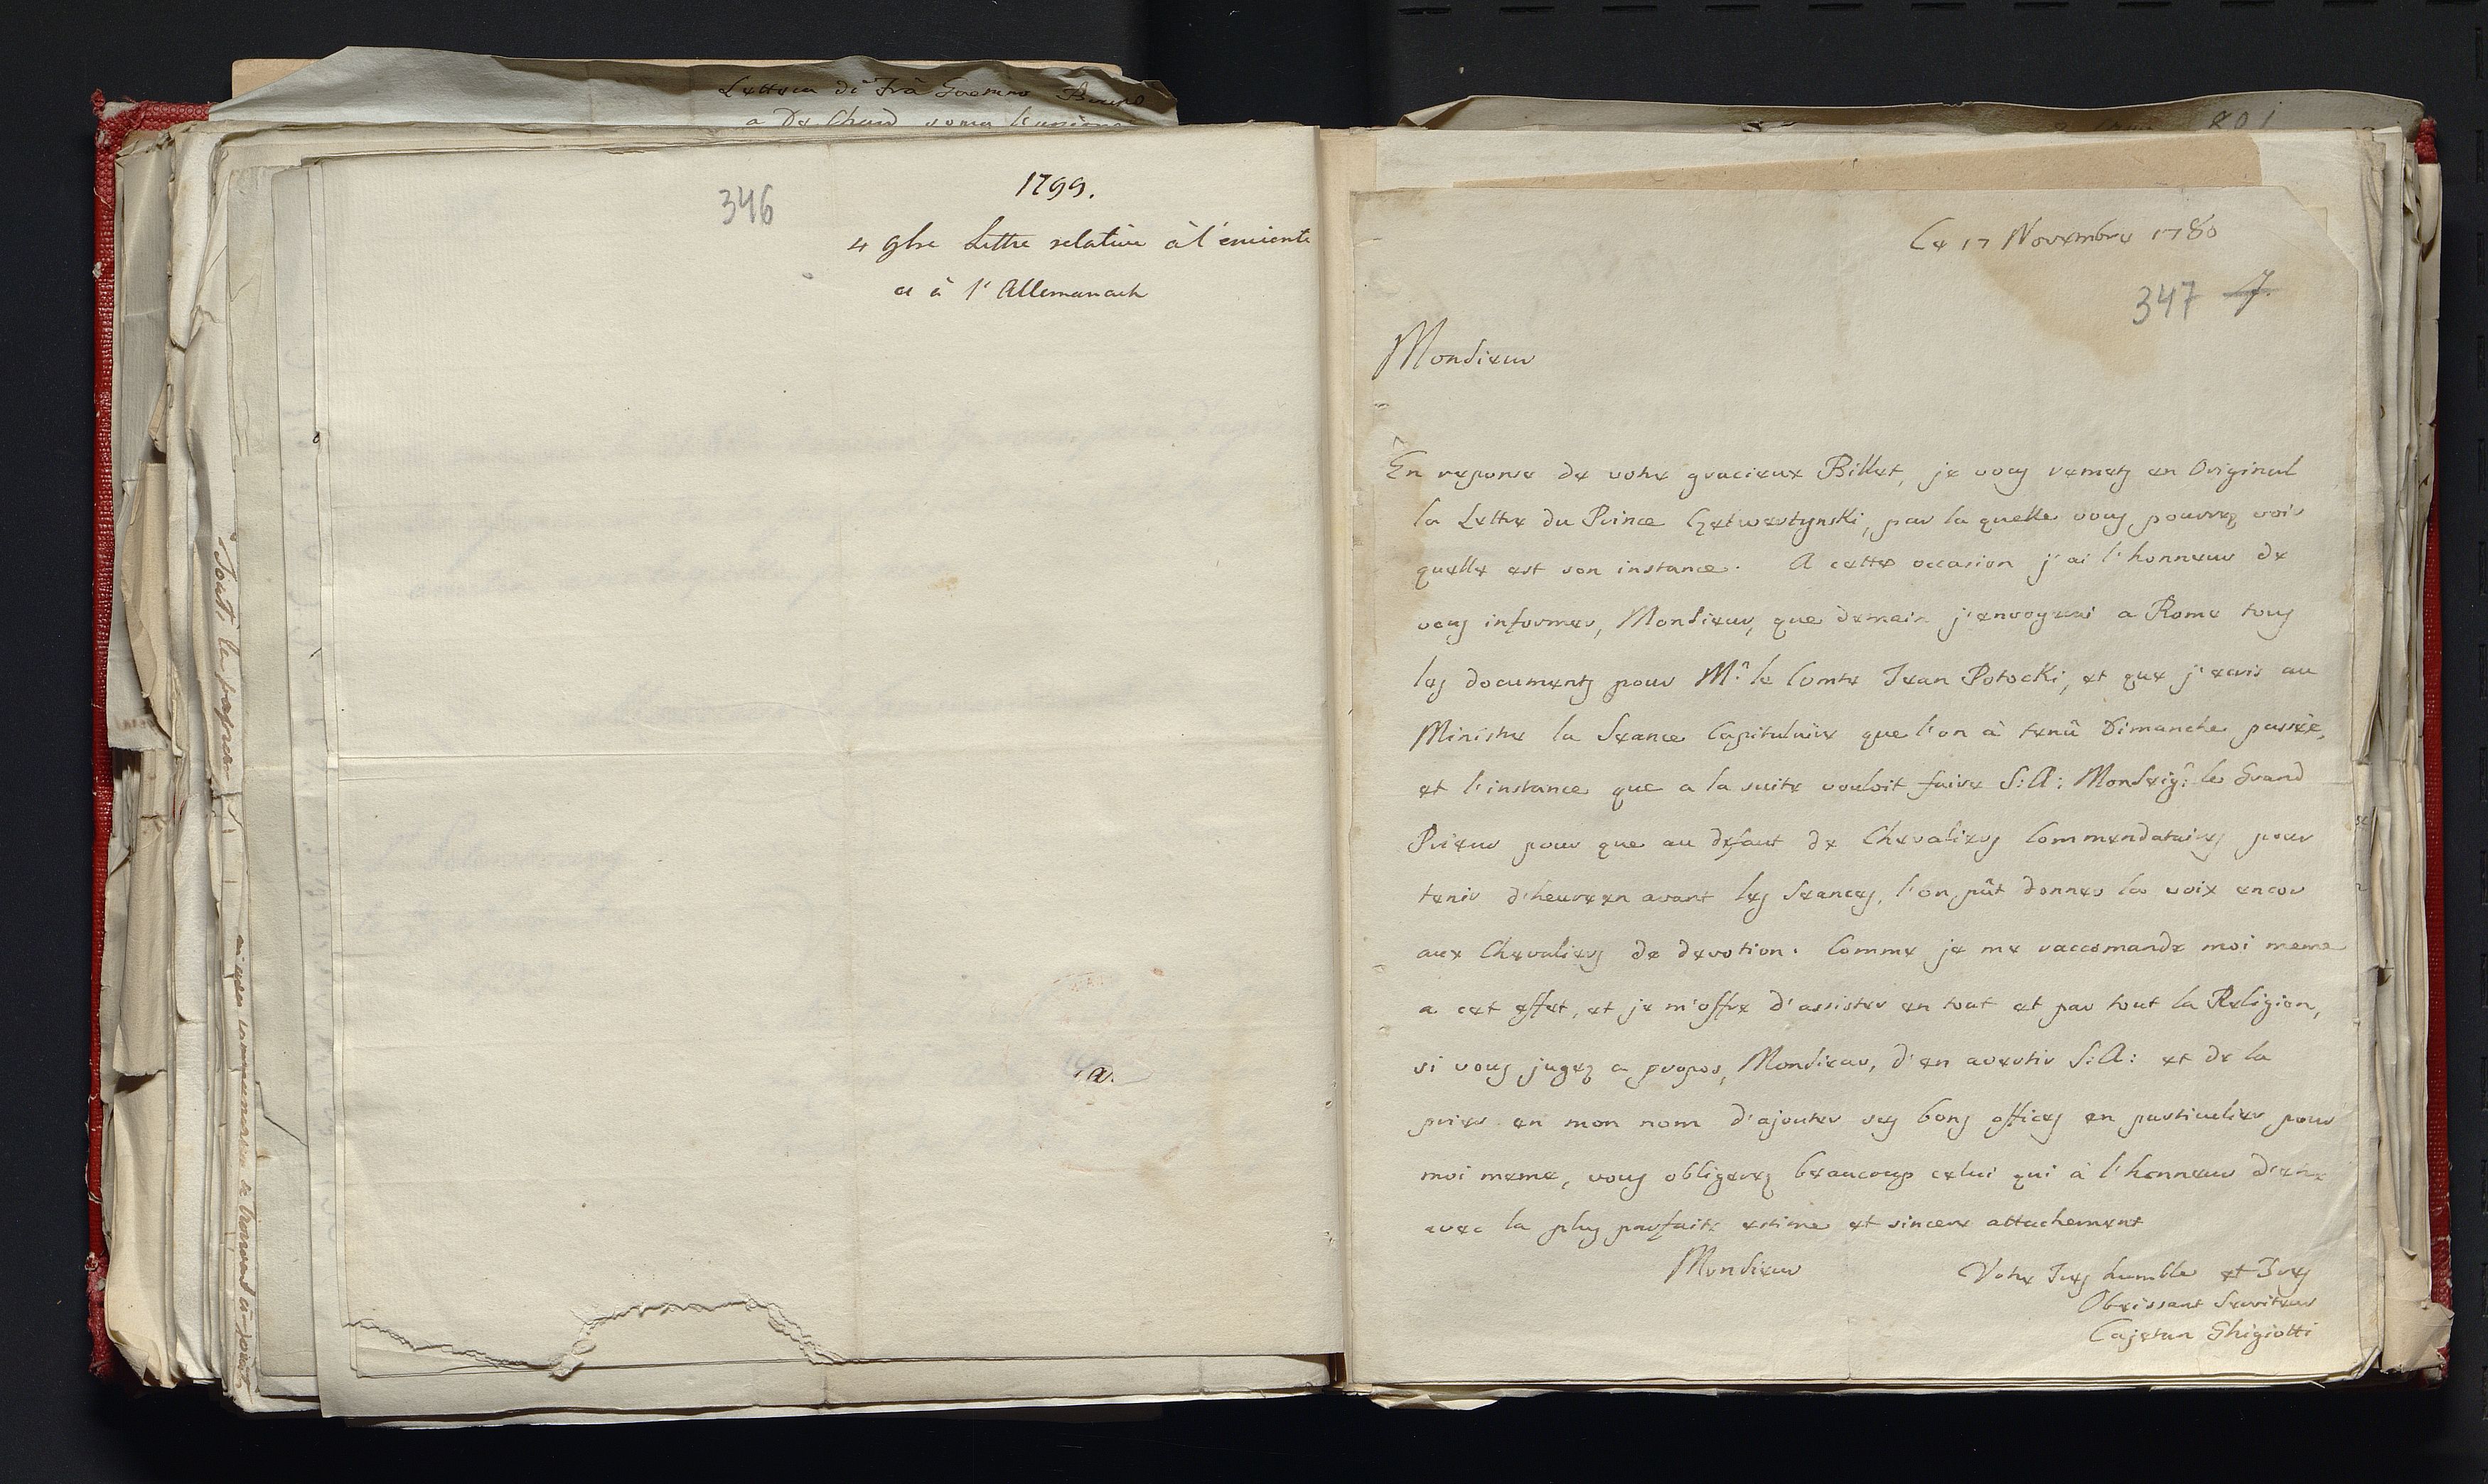 Lettera di Frà Gaetano Bruno
346
1799.
4 9bre Lettre relative à l'émeute
et à l'Allemanach
a.
Toutes les papiers
801
Ce 17 Novembre 1780
347 7.
Monsieur
En reponse de votre gracieux Billet, je vous remets en Original
la Lettre du Prince Czetwertynski, par la quelle vous pourrez voir
quelle est son instance. A cette occasion j'ai l'honneur de
vous informer, Monsieur, que demain j'envoyerai a Rome tous
les documents pour Mr. le Comte Jean Potocki, et que j'ecris au
Ministre la Seance Capitulaire que l'on à tenû Dimanche passée,
et l'instance que a la suite vouloit faire S:A: Monseigr: le Grand
Prieur pour que au defaut de Chevaliers Commendataires pour
tenir d'heure en avant les Seances, l'on pût donner la voix encor
aux Chevaliers de devotion. Comme je me raccomande moi meme
a cet effet, et je m'offre d'assister en tout et par tout la Religion,
si vous jugez a propos, Monsieur, d'en avertir S:A: et de la
prier en mon nom d'ajouter ses bons offices en particulier pour
moi meme, vous obligerez beaucoup celui qui à l'honneur d'etre
avec la plus parfaite estime et sincere attachement
Monsieur
Votre Tres humble et Tres
Obeissant Serviteur
Cajetan Ghigiotti